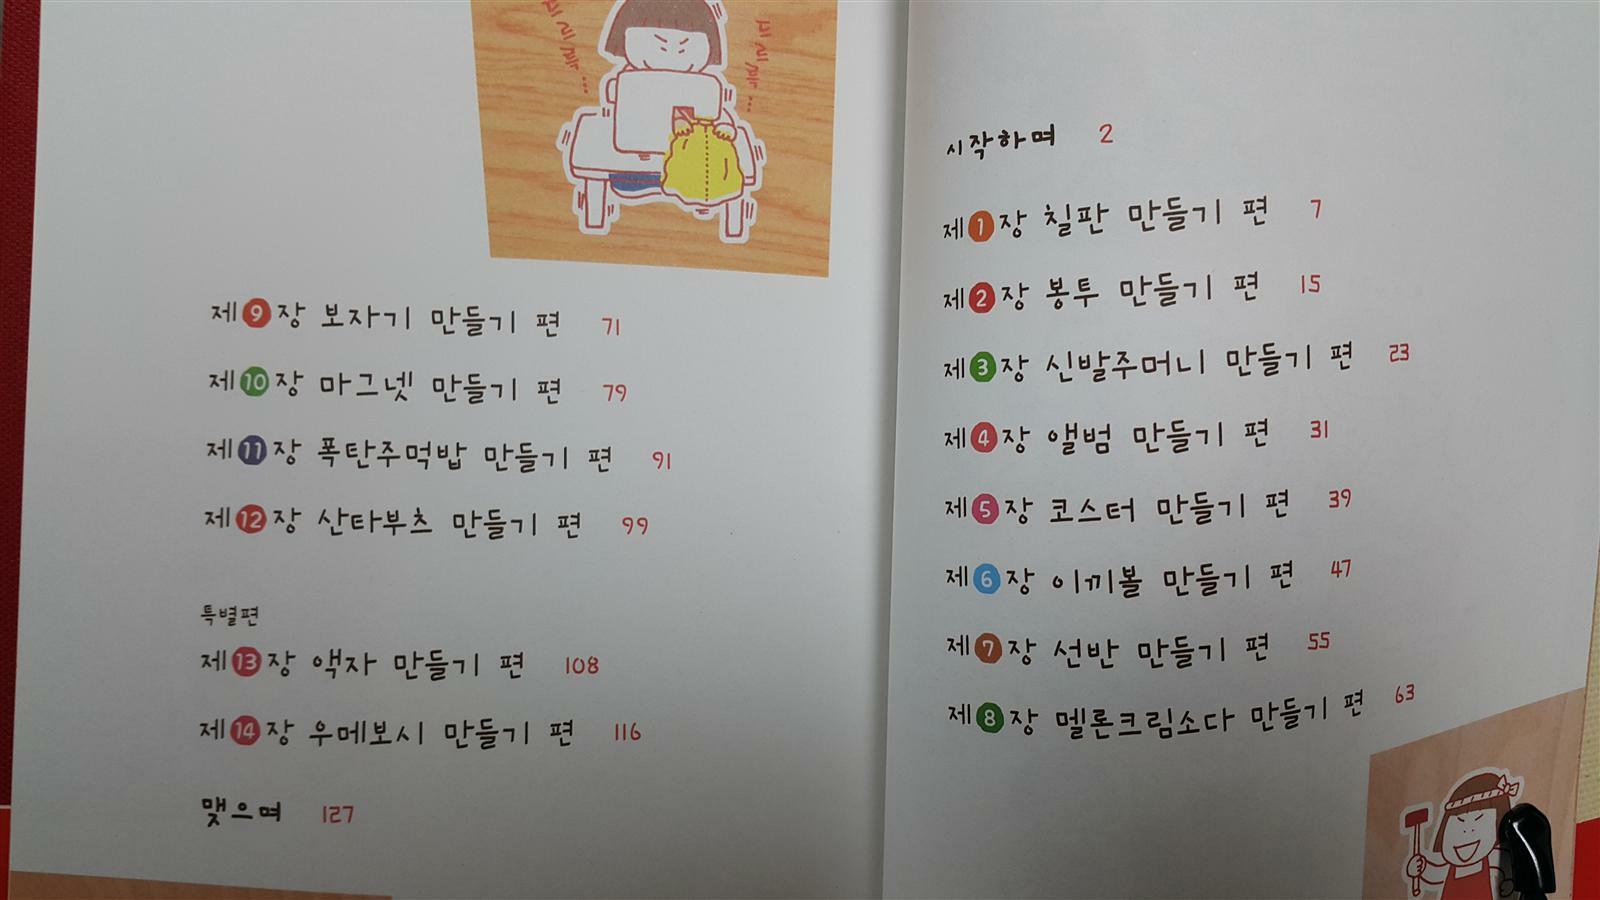 시작하며 2
제1장 칠판 만들기 편 7
제2장 봉투 만들기 편 15
제3장 신발주머니 만들기 편 23
제4장 앨범 만들기 편 31
제5장 코스터 만들기 편 39
제6장 이끼볼 만들기 편 47
제7장 선반 만들기 편 55
제8장 멜론크림소다 만들기 편 63
드르륵...
드르륵...
제9장 보자기 만들기 편 71
제10장 마그넷 만들기 편 79
제11장 폭탄주먹밥 만들기 편 91
제12장 산타부츠 만들기 편 99
특별편
제13장 액자 만들기 편 108
제14장 우메보시 만들기 편 116
맺으며 127